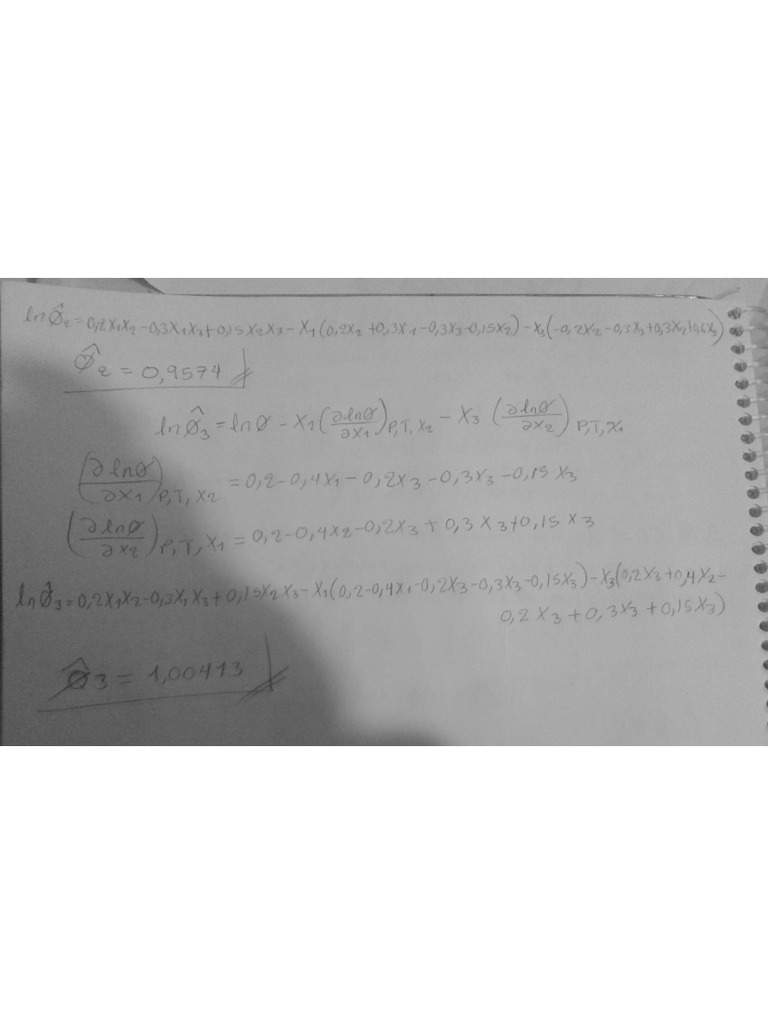 ln φ̂₂ = 0,2x₁x₂ - 0,3x₁x₃ + 0,15x₂x₃ - x₁(0,2x₂ + 0,3x₁ - 0,3x₃ - 0,15x₂) - x₃(-0,2x₂ - 0,3x₃ + 0,3x₁ + 0,6x₃)
φ̂₂ = 0,9574
ln φ̂₃ = ln φ - x₁(∂ln φ/∂x₁)P,T,x₂ - x₃(∂ln φ/∂x₂)P,T,x₁
(∂ln φ/∂x₁)P,T,x₂ = 0,2 - 0,4x₁ - 0,2x₃ - 0,3x₃ - 0,15x₃
(∂ln φ/∂x₂)P,T,x₁ = 0,2 - 0,4x₂ - 0,2x₃ + 0,3x₃ + 0,15x₃
ln φ̂₃ = 0,2x₁x₂ - 0,3x₁x₃ + 0,15x₂x₃ - x₁(0,2 - 0,4x₁ - 0,2x₃ - 0,3x₃ - 0,15x₃) - x₃(0,2x₃ + 0,4x₂ -
0,2x₃ + 0,3x₃ + 0,15x₃)
φ̂₃ = 1,00413